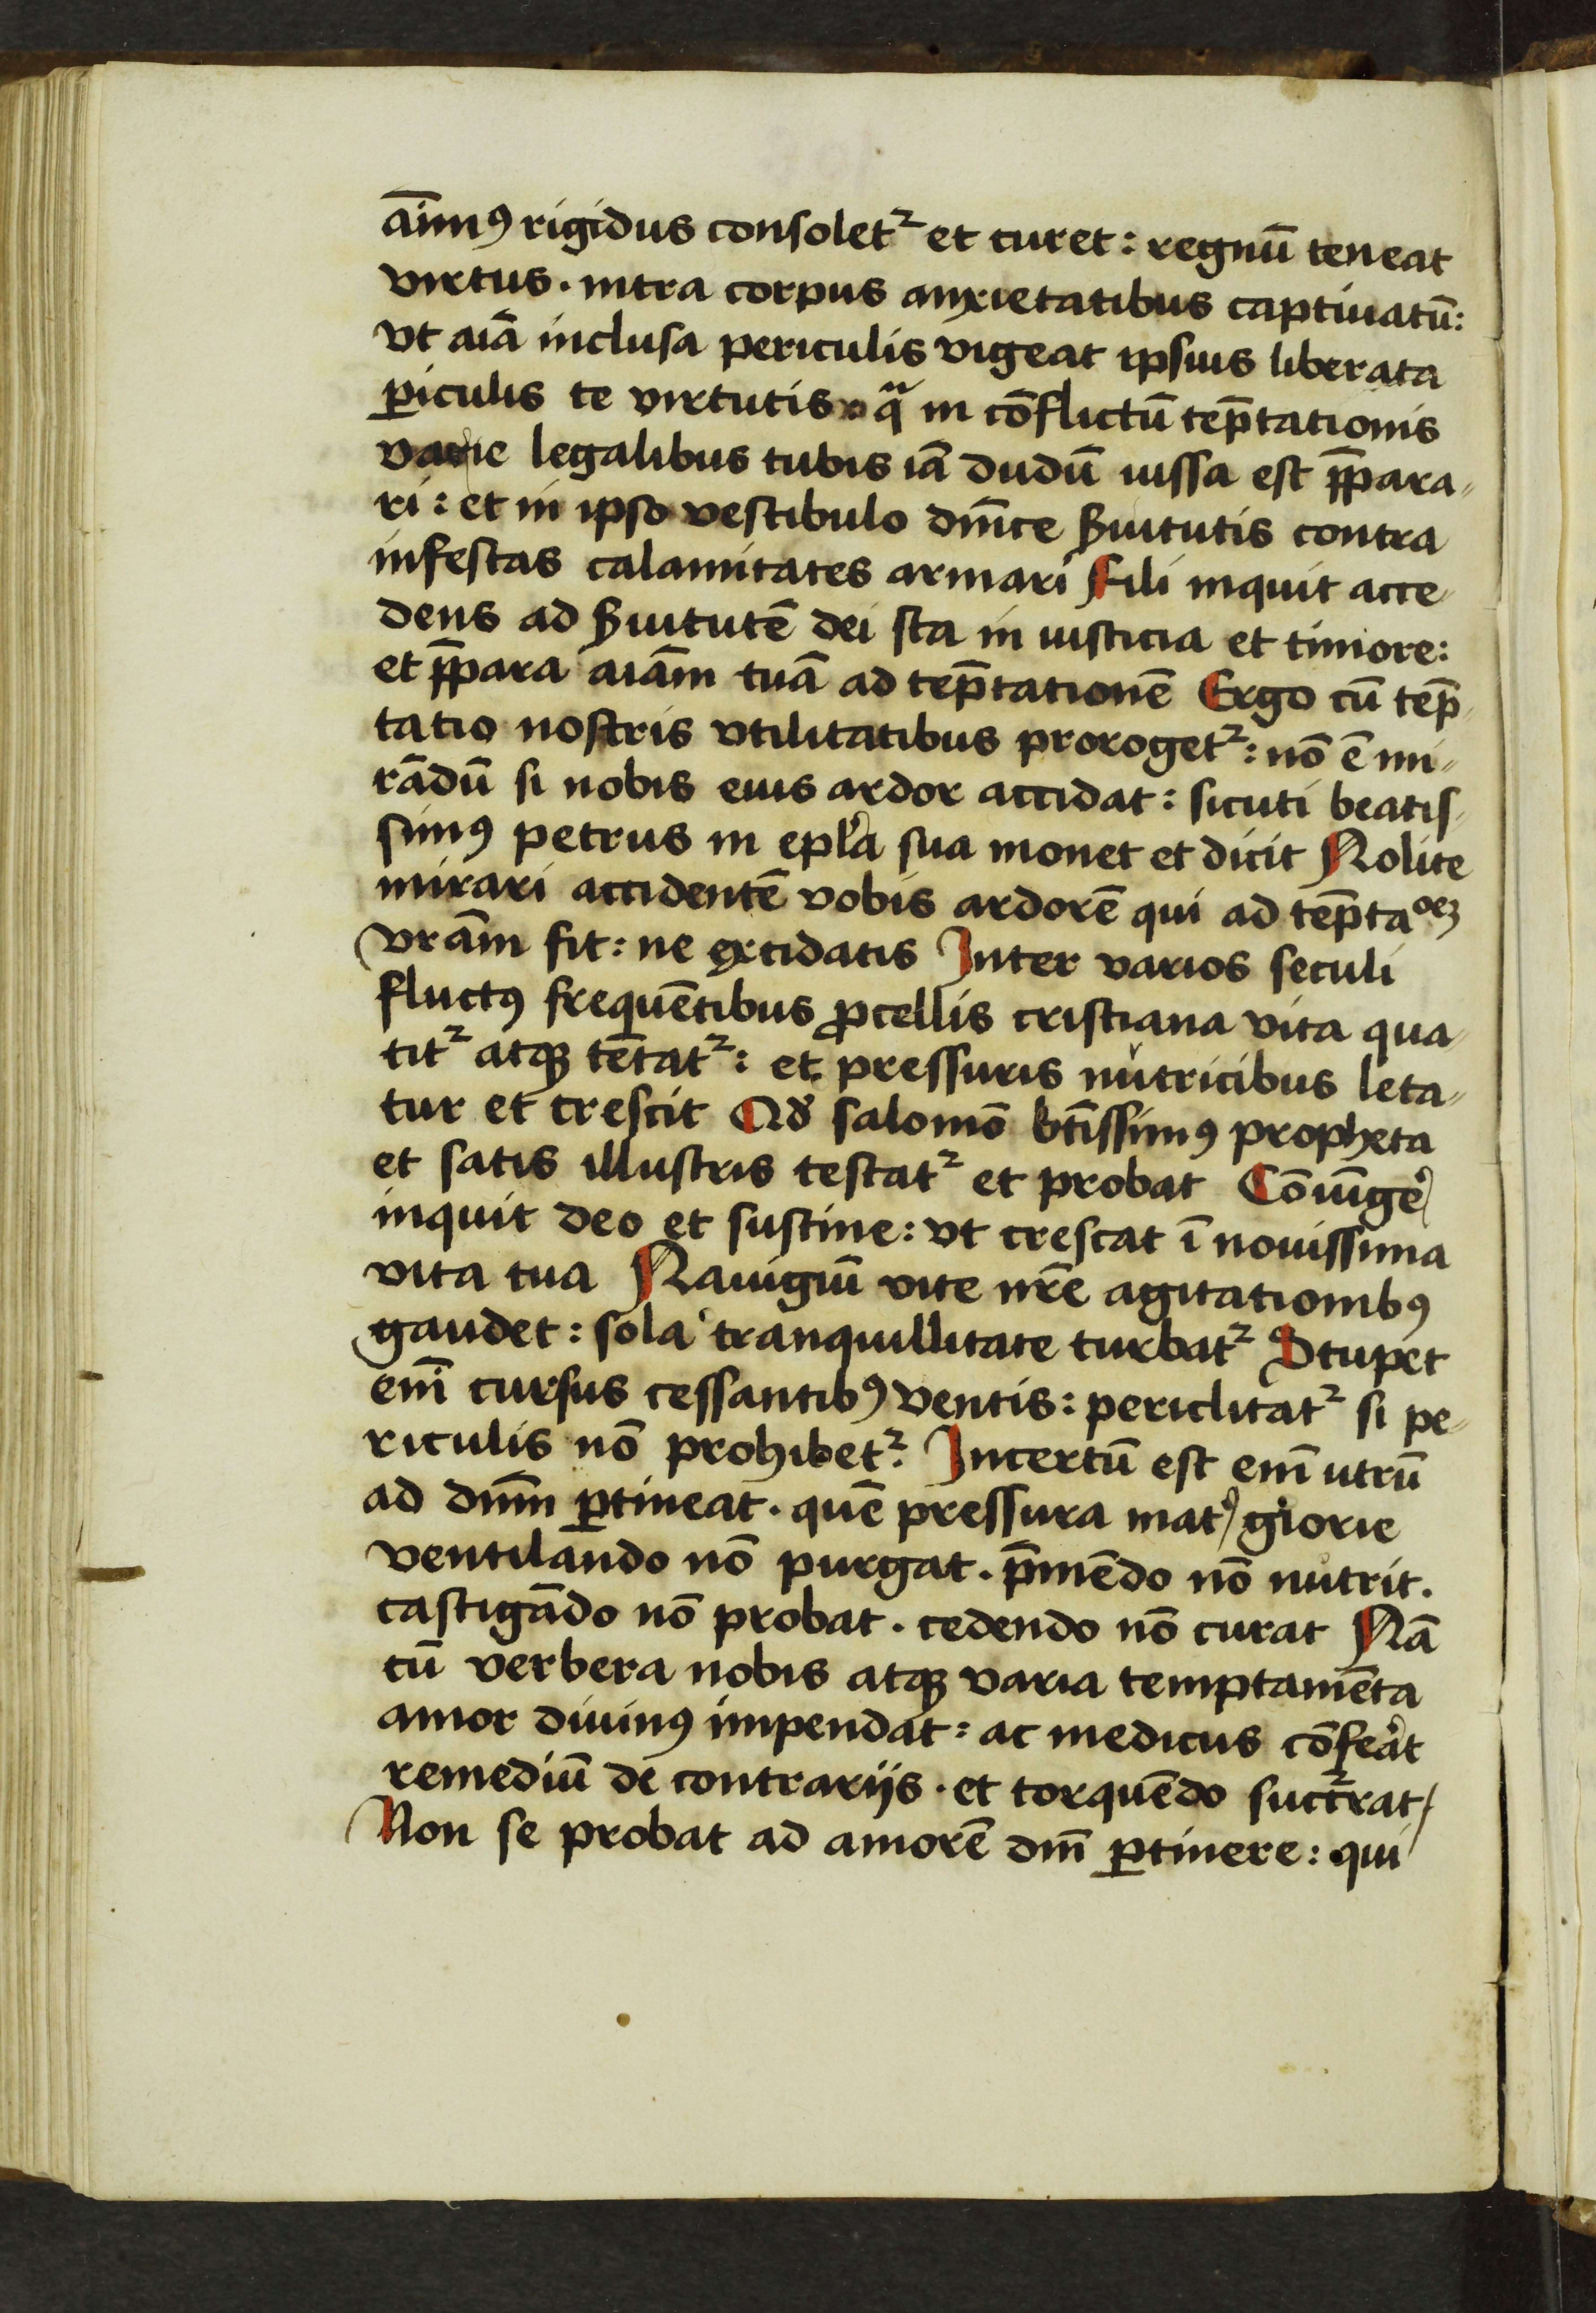 āīmꝰ rigidus consolet᷑ et curet: regnū teneat
virtus. intra corpus anxietatibus captiuatū:
vt aīā inclusa periculis vigeat ipsius liberata
ꝑiculis te virtutis. qᷓ in cōflictū tēp̄tationis
varie legalibus tubis iā dudū iussa est p̄para-
ri: et in ipso vestibulo dn̄ice ẜuitutis contra
infestas calamitates armari Fili inquit acce-
dens ad ẜuitutē dei sta in iusticia et timore:
et p̄para aīam tuā ad tēp̄tationē Ergo cū tēp̄-
tatio nostris vtilitatibus proroget᷑: nō ē mi-
rādū si nobis eius ardor accidat: sicuti beatis-
simꝰ petrus in epl̄a sua monet et dicit Nolite
mirari accidentē vobis ardorē qui ad tēp̄taᵒēꝫ
vrām fit: ne excidatis Inter varios seculi
fluctꝰ frequētibus ꝓcellis cristiana vita qua-
tit᷑ atqꝫ tētat᷑: et pressuris nutricibus leta-
tur et crescit Qđ salomō bt̄issimꝰ propheta
et satis illustris testat᷑ et probat Cōiūge͛
inquit deo et sustine: vt crescat ī nouissima
vita tua Nauigiū vite nr̄e agitationibꝰ
gaudet: sola tranquillitate turbat᷑ Stupet
enī cursus cessantibꝰ ventis: periclitat᷑ si pe-
riculis nō prohibet᷑. Incertū est enī utrū
ad dn̄m ꝑtineat. quē pressura mat͛ glorie
ventilando nō purgat. p̄mēdo nō nutrit.
castigādo nō probat. cedendo nō curat Nā
cū verbera nobis atqꝫ varia temptamēta
amor diuinꝰ impendat: ac medicus cōfe͛at
remediū de contrarijs. et torquēdo suc᷑rat
Non se probat ad amorē dn̄i ꝑtinere: qui